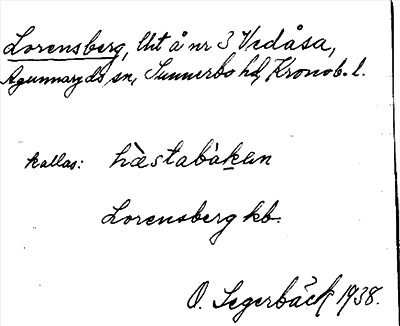 Lorensberg, Utt å nr 3 Vedåsa,
Agunnaryds sn, Sunnerbo hd, Kronob. l.
kallas: hæstabakan
Lorensberg kb.
O. Segerbäck 1938.